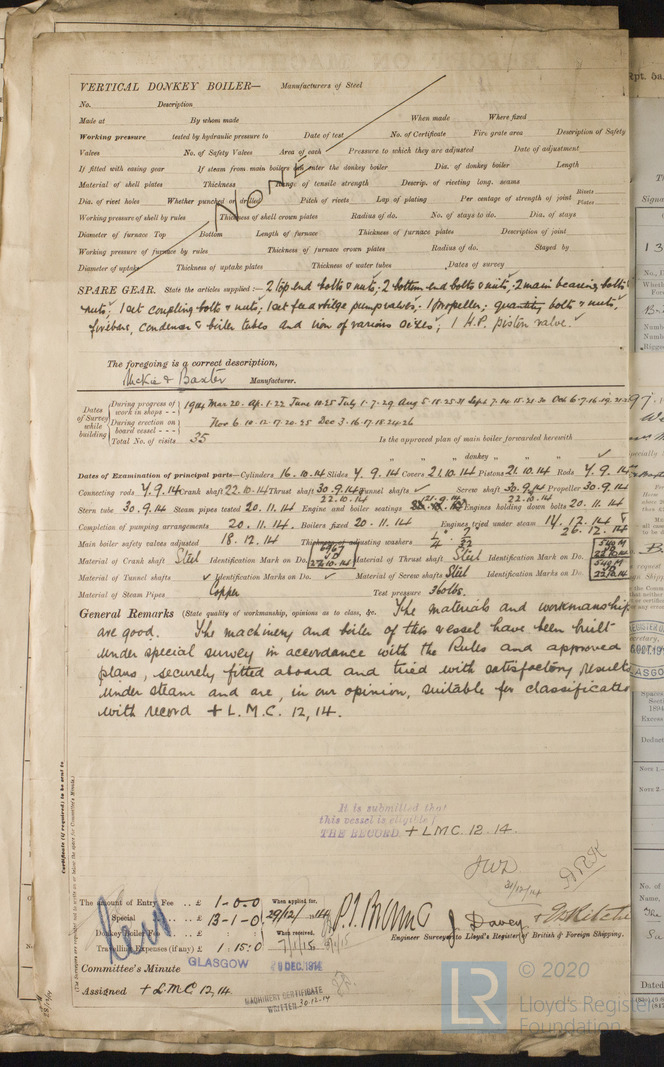 VERTICAL DONKEY BOILER— Manufacturers of Steel
No. Description
Made at By whom made When made Where fixed
Working pressure tested by hydraulic pressure to Date of test No. of Certificate Fire grate area Description of Safety
Valves No. of Safety Valves Area of each Pressure to which they are adjusted Date of adjustment
If fitted with easing gear If steam from main boilers can enter the donkey boiler Dia. of donkey boiler Length
Material of shell plates Thickness Range of tensile strength Descrip. of riveting long. seams
Dia. of rivet holes Whether punched or drilled Pitch of rivets Lap of plating Per centage of strength of joint Rivets Plates
Working pressure of shell by rules Thickness of shell crown plates Radius of do. No. of stays to do. Dia. of stays
Diameter of furnace Top Bottom Length of furnace Thickness of furnace plates Description of joint
Working pressure of furnace by rules Thickness of furnace crown plates Radius of do. Stayed by
Diameter of uptake Thickness of uptake plates Thickness of water tubes Dates of survey
None
SPARE GEAR. State the articles supplied:— 2 top end bolts & nuts, 2 bottom end bolts & nuts, 2 main bearing bolts
nuts; 1 set coupling bolts & nuts; 1 set feed & bilge pump valves; 1 propeller; quantity bolts & nuts,
firebars, condenser & boiler tubes and iron of various sizes; 1 H.P. piston valve.
The foregoing is a correct description,
Mackie & Baxter Manufacturer.
Dates of Survey while building
During progress of work in shops -- 1914 Mar 20. Ap. 1. 22 June 10. 25 July 1. 7. 29 Aug 5. 11. 25. 31 Sept 7. 14. 15. 21. 30 Oct 6. 7. 16. 19.
During erection on board vessel --- Nov 6. 10. 12. 17. 20. 25 Dec 3. 16. 17. 18. 24. 26
Total No. of visits 35 Is the approved plan of main boiler forwarded herewith
" " " donkey " " "
Dates of Examination of principal parts—Cylinders 16.10.14 Slides 7.9.14 Covers 21.10.14 Pistons 21.10.14 Rods 7.9.14
Connecting rods 7.9.14 Crank shaft 22.10.14 Thrust shaft 30.9.14 22.10.14 Tunnel shafts ✓ Screw shaft 30.9.14 22.10.14 Propeller 30.9.14
Stern tube 30.9.14 Steam pipes tested 20.11.14 Engine and boiler seatings 21.9.14 Engines holding down bolts 20.11.14
Completion of pumping arrangements 20.11.14 Boilers fixed 20.11.14 Engines tried under steam 17.12.14 & 26.12.14
Main boiler safety valves adjusted 18.12.14 Thickness of adjusting washers
Material of Crank shaft Steel Identification Mark on Do. Material of Thrust shaft Steel Identification Mark on Do.
Material of Tunnel shafts ✓ Identification Marks on Do. ✓ Material of Screw shafts Steel Identification Marks on Do.
Material of Steam Pipes Copper Test pressure 360 lbs.
General Remarks (State quality of workmanship, opinions as to class, &c. The materials and workmanship
are good. The machinery and boiler of this vessel have been built
under special survey in accordance with the Rules and approved
plans, securely fitted aboard and tried with satisfactory results
under steam and are, in our opinion, suitable for classification
with record + L.M.C. 12, 14.
It is submitted that
this vessel is eligible for
THE RECORD. + LMC. 12. 14.
JWD
31/12/14
The amount of Entry Fee .. £ 1 - 0 - 0 When applied for,
Special .. .. £ 13 - 1 - 0 29/12/ 1914
Donkey Boiler Fee .. .. £ : : When received,
Travelling Expenses (if any) £ 1 : 15 : 0 7/1/15
J. Davey
Engineer Surveyor to Lloyd's Register of British & Foreign Shipping.
Committee's Minute GLASGOW
Assigned + L.M.C. 12, 14.
MACHINERY CERTIFICATE
WRITTEN 30.12.14
LR © 2020
Lloyd's Register
Foundation